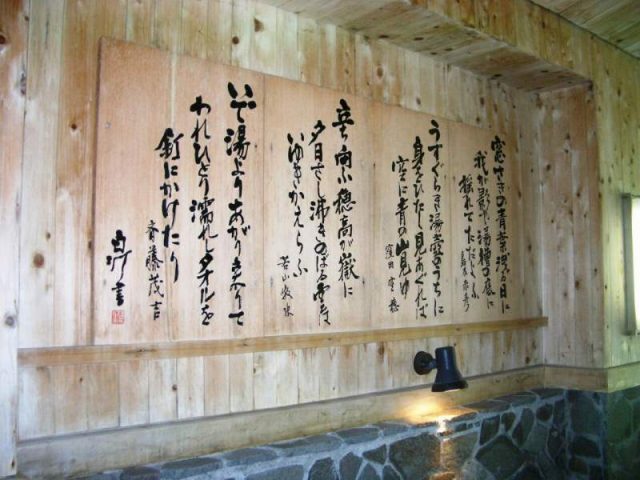 窓さきの青葉浅き日に
我が影や湯槽の底に
揺れてたゞよふ
うすぐらき湯壺のうちに
身をひたし見あぐれば
空に青の山見ゆ
窪田空穂
立ち向ふ穂高が嶽に
夕日さし沸きのぼる雲は
いゆきかえらふ
若山牧水
いで湯よりあがりきたりて
われひとり濡れしタオルを
釘にかけたり
斉藤茂吉